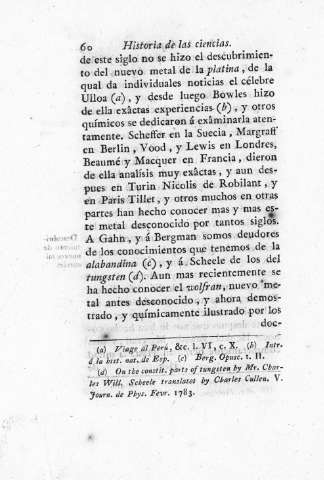 60 Historia de las ciencias.
de este siglo no se hizo el descubrimien-
to del nuevo metal de la platina, de la
qual da individuales noticias el célebre
Ulloa (a), y desde luego Bowles hizo
de ella exâctas experiencias (b), y otros
químicos se dedicaron á exâminarla aten-
tamente. Scheffer en la Suecia, Margraff
en Berlin, Vood, y Lewis en Londres,
Beaumé y Macquer en Francia, dieron
de ella analísis muy exâctas, y aun des-
pues en Turin Nicolis de Robilant, y
en Paris Tillet, y otros muchos en otras
partes han hecho conocer mas y mas es-
te metal desconocido por tantos siglos.
A Gahn, y á Bergman somos deudores
de los conocimientos que tenemos de la
alabandina (c), y á Scheele de los del
tungsten (d). Aun mas recientemente se
ha hecho conocer el wolfran, nuevo me-
tal antes desconocido, y ahora demos-
trado, y químicamente ilustrado por los
doc-
(a) Viage al Perú, &c. l. VI, c. X. (b) Intr.
á la hist. nat. de Esp. (c) Berg. Opusc. t. II.
(d) On the constit. parts of tungsten by Mr. Char-
les Will. Scheele translated by Charles Cullen. V.
Journ. de Phys. Fevr. 1783.